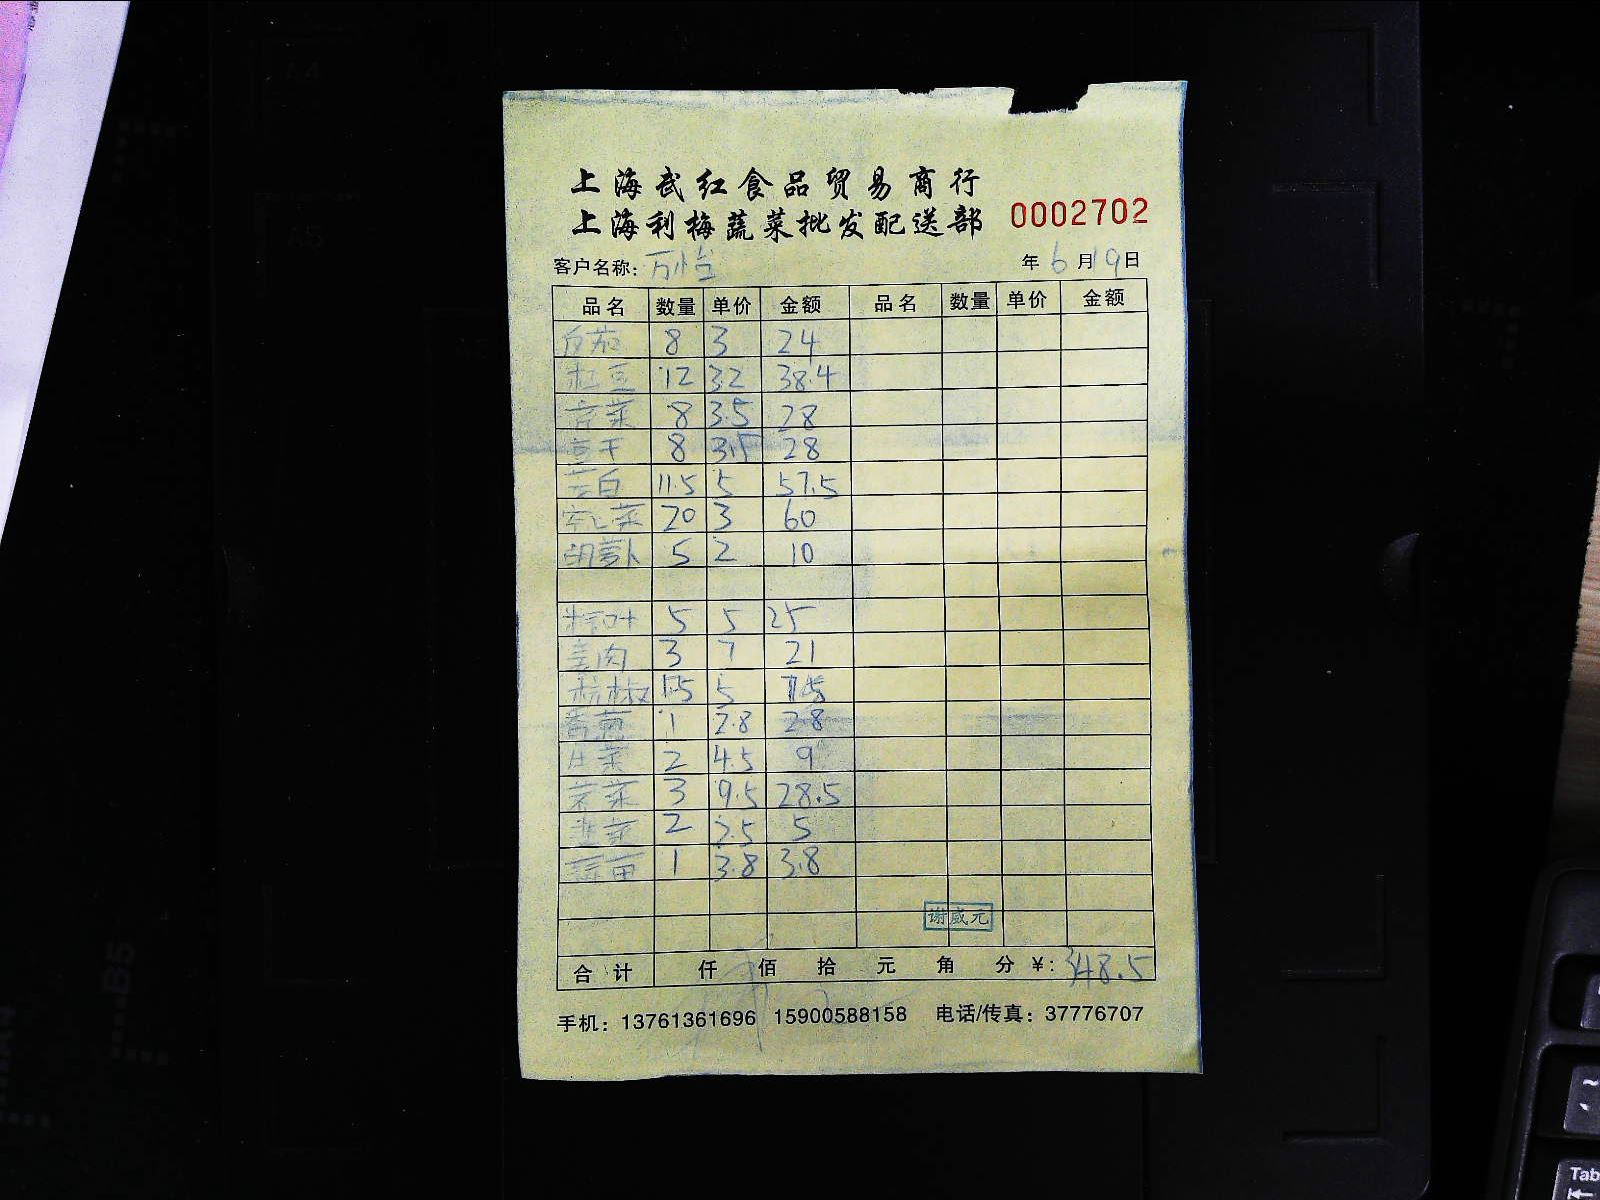 上海武红食品贸易商行
上海利梅蔬菜批发配送部 0002702
客户名称: 万怡 年 6 月 19 日
品名 数量 单价 金额 品名 数量 单价 金额
8 3 24
豇豆 12 3.2 38.4
芹菜 8 3.5 28
豆干 8 3.5 28
茭白 11.5 5 57.5
20 3 60
胡萝卜 5 2 10
5 5 25
姜肉 3 7 21
杭椒 1.5 5 7.5
香葱 1 2.8 2.8
生菜 2 4.5 9
3 9.5 28.5
韭菜 2 2.5 5
1 3.8 3.8
谢威元
合计 仟 佰 拾 元 角 分 ¥: 348.5
手机: 13761361696 15900588158 电话/传真: 37776707
A4
A5
B5
Tab